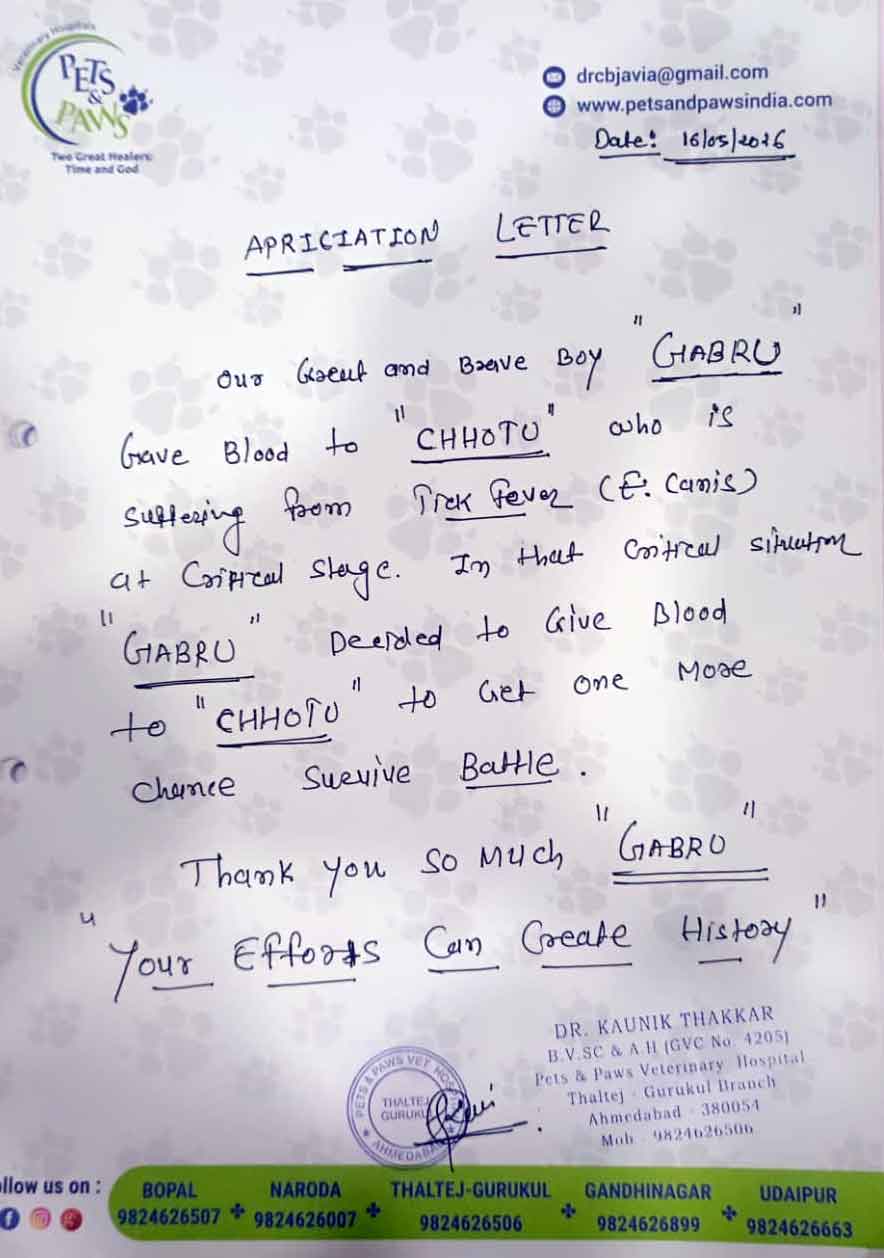 Veterinary Hospitals
PETS
&
PAWS
Two Great Healers:
Time and God
drcbjavia@gmail.com
www.petsandpawsindia.com
Date: 16/05/2026
APRICIATION LETTER
Our Great and Brave Boy "GABRU"
Gave Blood to "CHHOTU" who is
suffering from Tick Fever (E. Canis)
at Critical stage. In that Critical situation
"GABRU" Decided to Give Blood
to "CHHOTU" to Get one More
chance Survive Battle.
Thank You so Much "GABRU"
"Your Efforts Can Create History"
DR. KAUNIK THAKKAR
B.V.SC & A.H (GVC No. 4205)
Pets & Paws Veterinary Hospital
Thaltej - Gurukul Branch
Ahmedabad - 380054
Mob : 9824626506
PETS & PAWS VET HOSPITAL
THALTEJ
GURUKUL
AHMEDABAD
ollow us on :
BOPAL NARODA THALTEJ-GURUKUL GANDHINAGAR UDAIPUR
9824626507 9824626007 9824626506 9824626899 9824626663